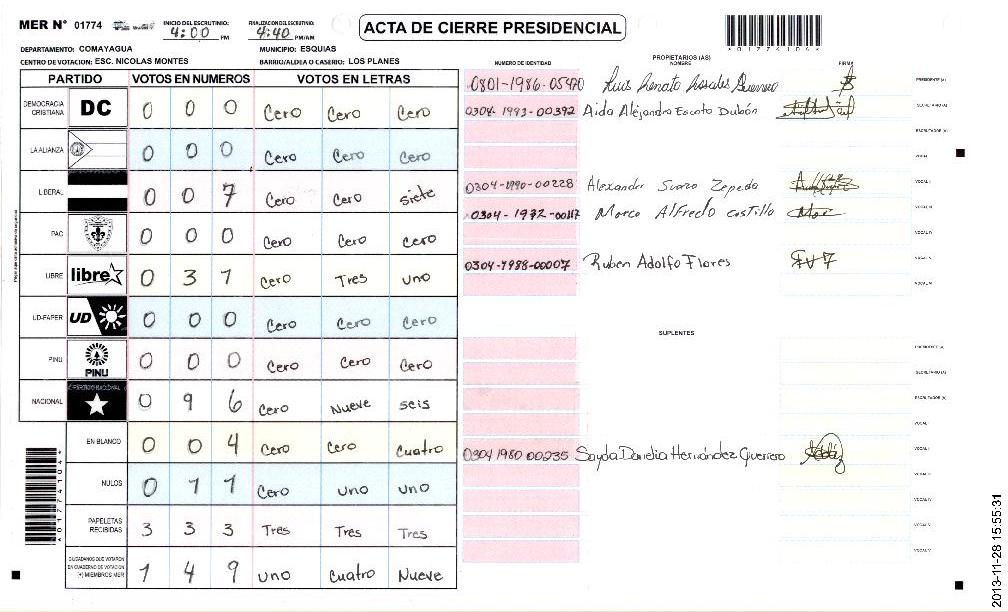 MER N° 01774
INICIO DEL ESCRUTINIO: 4:00 PM
FINALIZACION DEL ESCRUTINIO: 4:40 PM/AM
ACTA DE CIERRE PRESIDENCIAL
*01774104*
DEPARTAMENTO: COMAYAGUA
MUNICIPIO: ESQUIAS
CENTRO DE VOTACION: ESC. NICOLAS MONTES
BARRIO/ALDEA O CASERIO: LOS PLANES
PARTIDO VOTOS EN NUMEROS VOTOS EN LETRAS
DEMOCRACIA CRISTIANA DC 0 0 0 Cero Cero Cero
LA ALIANZA 0 0 0 Cero Cero Cero
LIBERAL 0 0 7 Cero Cero siete
PAC 0 0 0 Cero Cero Cero
LIBRE libre 0 3 1 Cero Tres uno
UD-FAPER UD 0 0 0 Cero Cero Cero
PINU PINU 0 0 0 Cero Cero Cero
NACIONAL 0 9 6 Cero Nueve seis
EN BLANCO 0 0 4 Cero Cero Cuatro
NULOS 0 1 1 Cero uno uno
PAPELETAS RECIBIDAS 3 3 3 Tres Tres Tres
CIUDADANOS QUE VOTARON EN CUADERNO DE VOTACION (+) MIEMBROS MER 1 4 9 uno Cuatro Nueve
*01774104*
PROPIETARIOS (AS)
NUMERO DE IDENTIDAD NOMBRE FIRMA
0801-1986-05470 Luis Renato Rosales Guerrero PRESIDENTE (A)
0304-1993-00392 Aida Alejandra Escoto Dubón SECRETARIO (A)
ESCRUTADOR (A)
VOCAL
0304-1990-00228 Alexander Suazo Zepeda VOCAL I
0304-1972-00117 Marco Alfredo castillo VOCAL III
VOCAL IV
0304-1988-00007 Ruben Adolfo Flores VOCAL V
VOCAL VI
SUPLENTES
PRESIDENTE (A)
SECRETARIO (A)
ESCRUTADOR (A)
VOCAL
0304 1980 00235 Sayda Danelia Hernández Guerrero VOCAL I
VOCAL IV
VOCAL V
2013-11-28 15:55:31